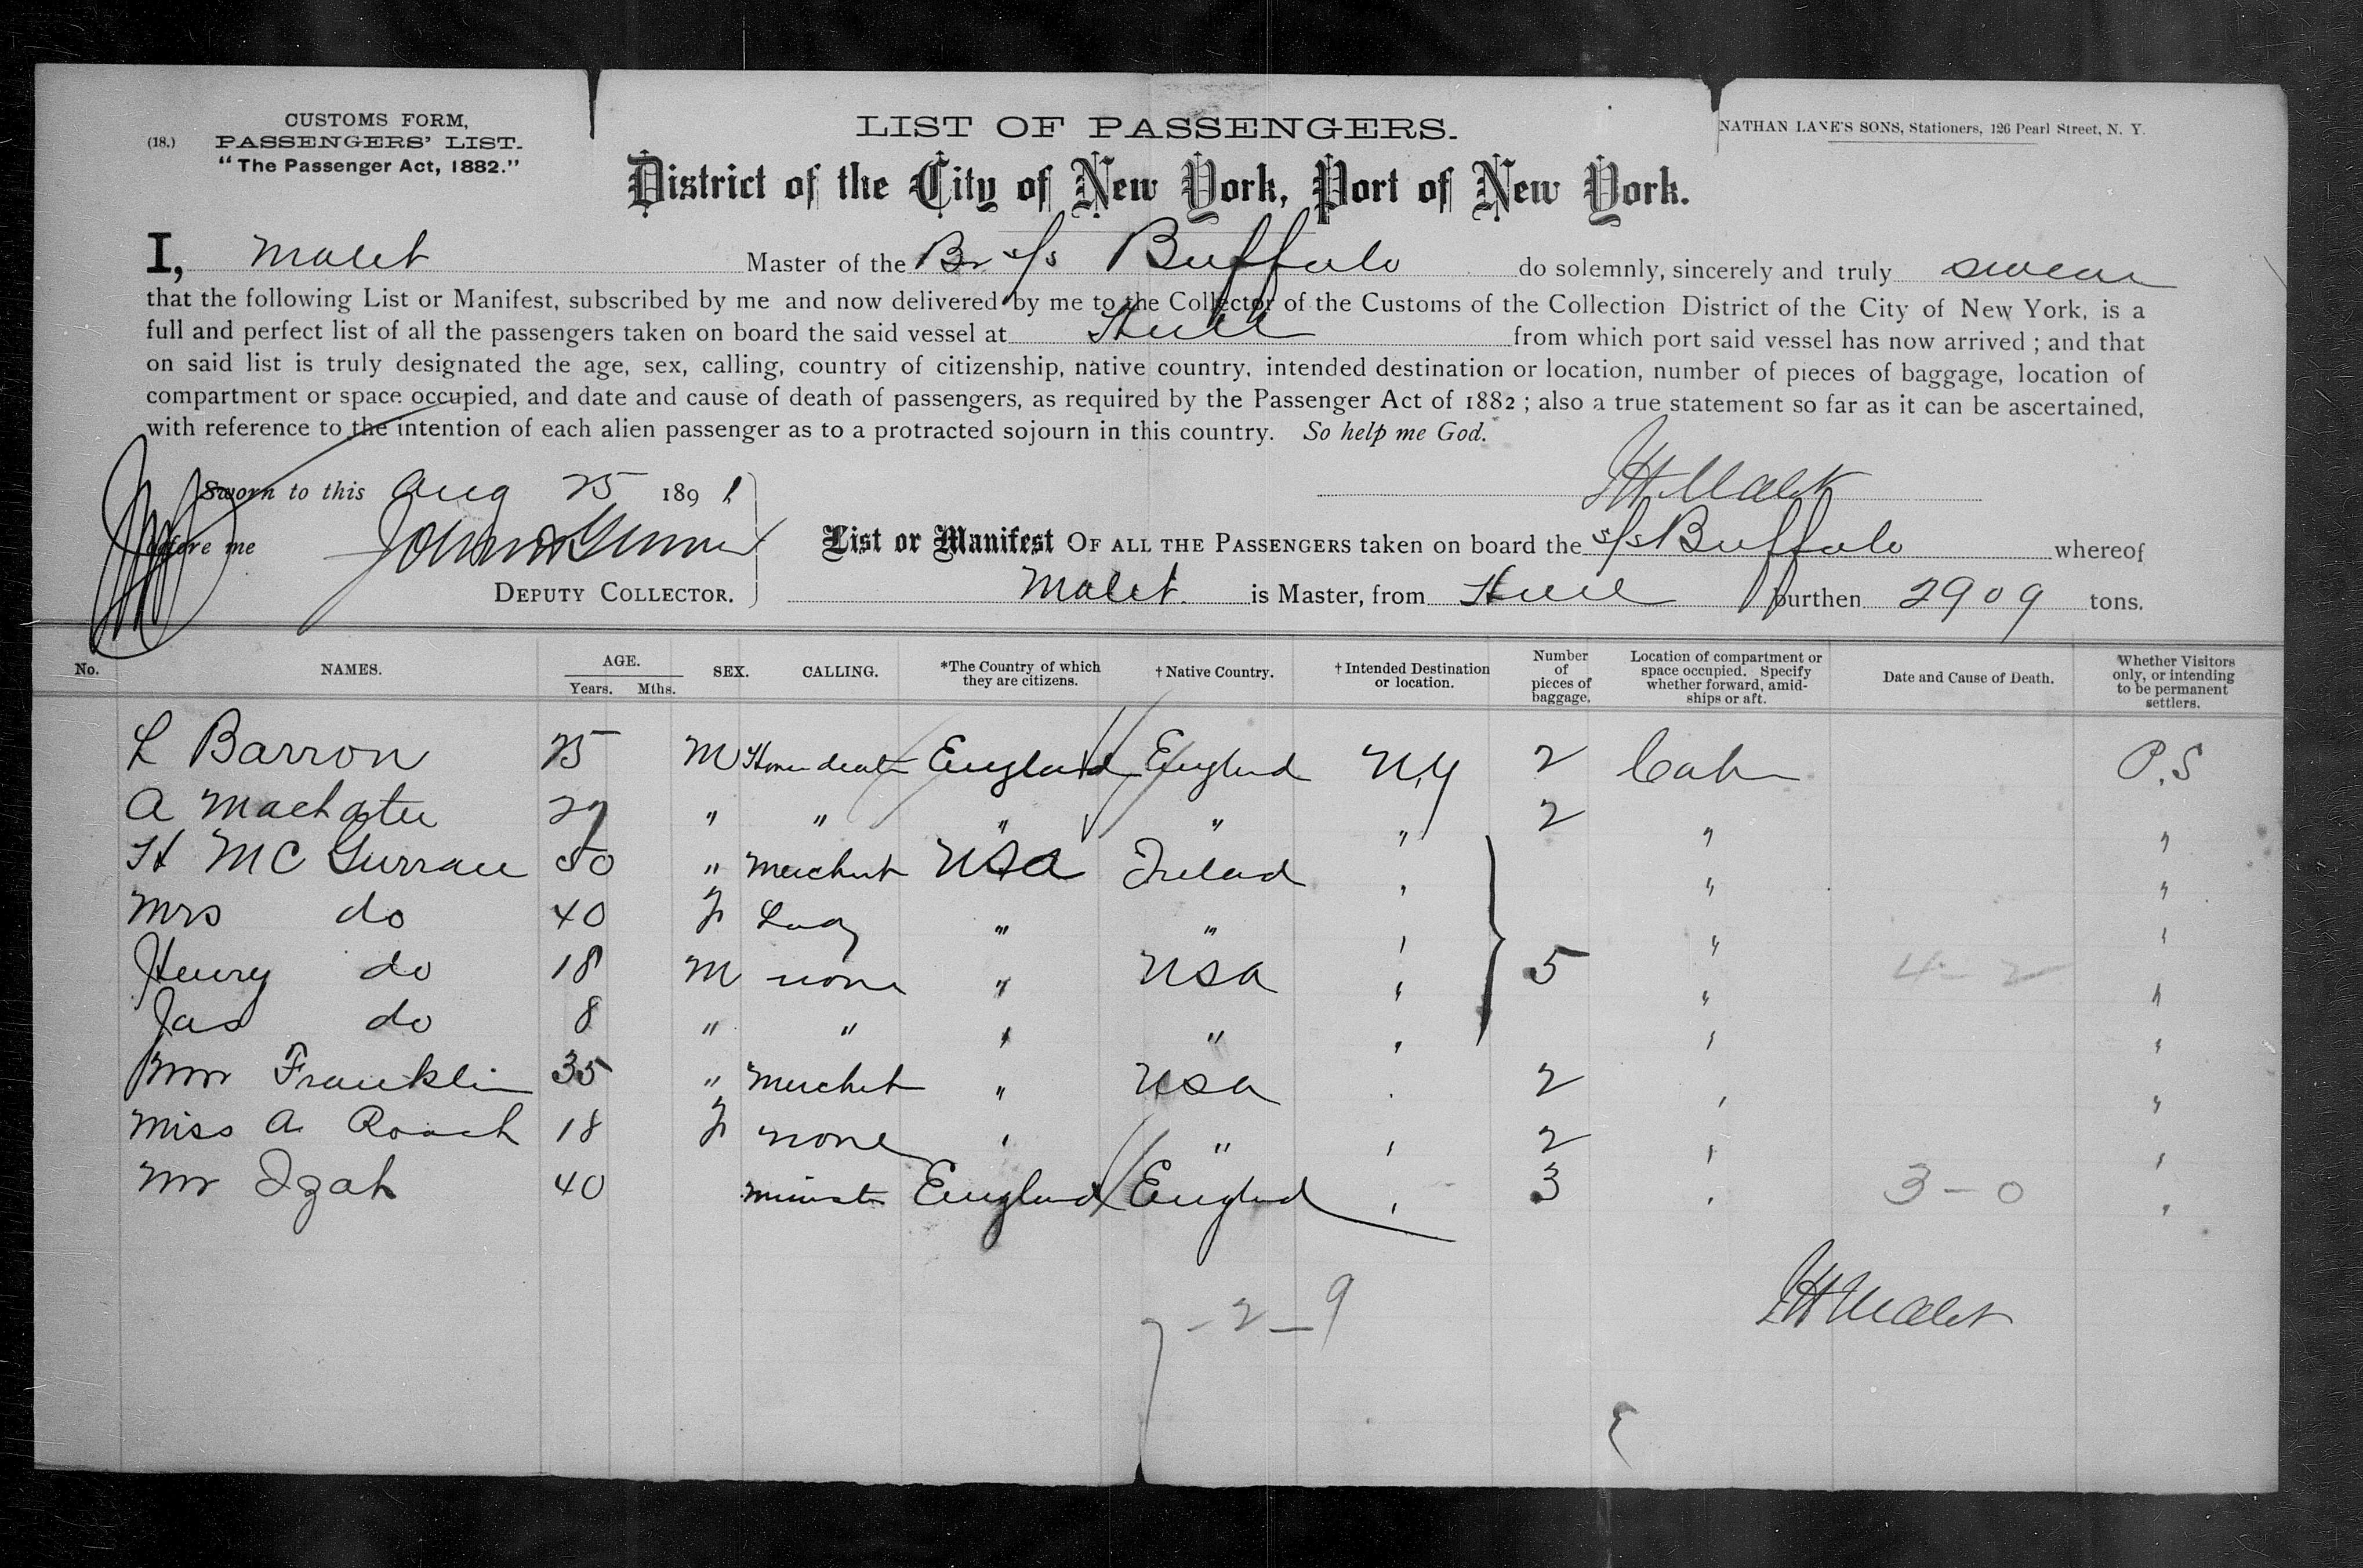 CUSTOMS FORM,
(18.) PASSENGERS' LIST.
"The Passenger Act, 1882."
LIST OF PASSENGERS.
NATHAN LANE'S SONS, Stationers, 126 Pearl Street, N. Y.
District of the City of New York, Port of New York.
I, Malet Master of the Br s/s Buffalo do solemnly, sincerely and truly swear
that the following List or Manifest, subscribed by me and now delivered by me to the Collector of the Customs of the Collection District of the City of New York, is a
full and perfect list of all the passengers taken on board the said vessel at Hull from which port said vessel has now arrived ; and that
on said list is truly designated the age, sex, calling, country of citizenship, native country, intended destination or location, number of pieces of baggage, location of
compartment or space occupied, and date and cause of death of passengers, as required by the Passenger Act of 1882 ; also a true statement so far as it can be ascertained,
with reference to the intention of each alien passenger as to a protracted sojourn in this country. So help me God.
Sworn to this Aug 25 1891
J H Malet
before me
DEPUTY COLLECTOR.
List or Manifest OF ALL THE PASSENGERS taken on board the s/s Buffalo whereof
Malet. is Master, from Hull burthen 2909 tons.
No. NAMES. AGE. Years. Mths. SEX. CALLING. *The Country of which they are citizens. † Native Country. † Intended Destination or location. Number of pieces of baggage. Location of compartment or space occupied. Specify whether forward, amidships or aft. Date and Cause of Death. Whether Visitors only, or intending to be permanent settlers.
L Barron 25 M England England N.Y 2 P.S
A 27 " " " " " 2 " "
H McGurran 50 " Merchnt USA Ireland " " "
Mrs do 40 F Lady " " " " "
Henry do 18 M none " USA " 5 " 4-2 "
Jas do 8 " " " " " " "
Mr Franklin 35 " Merchnt " USA " 2 " "
Miss A Roach 18 F none " " " 2 " "
Mr Izah 40 Minist England England " 3 " 3-0 "
7-2-9
J H Malet